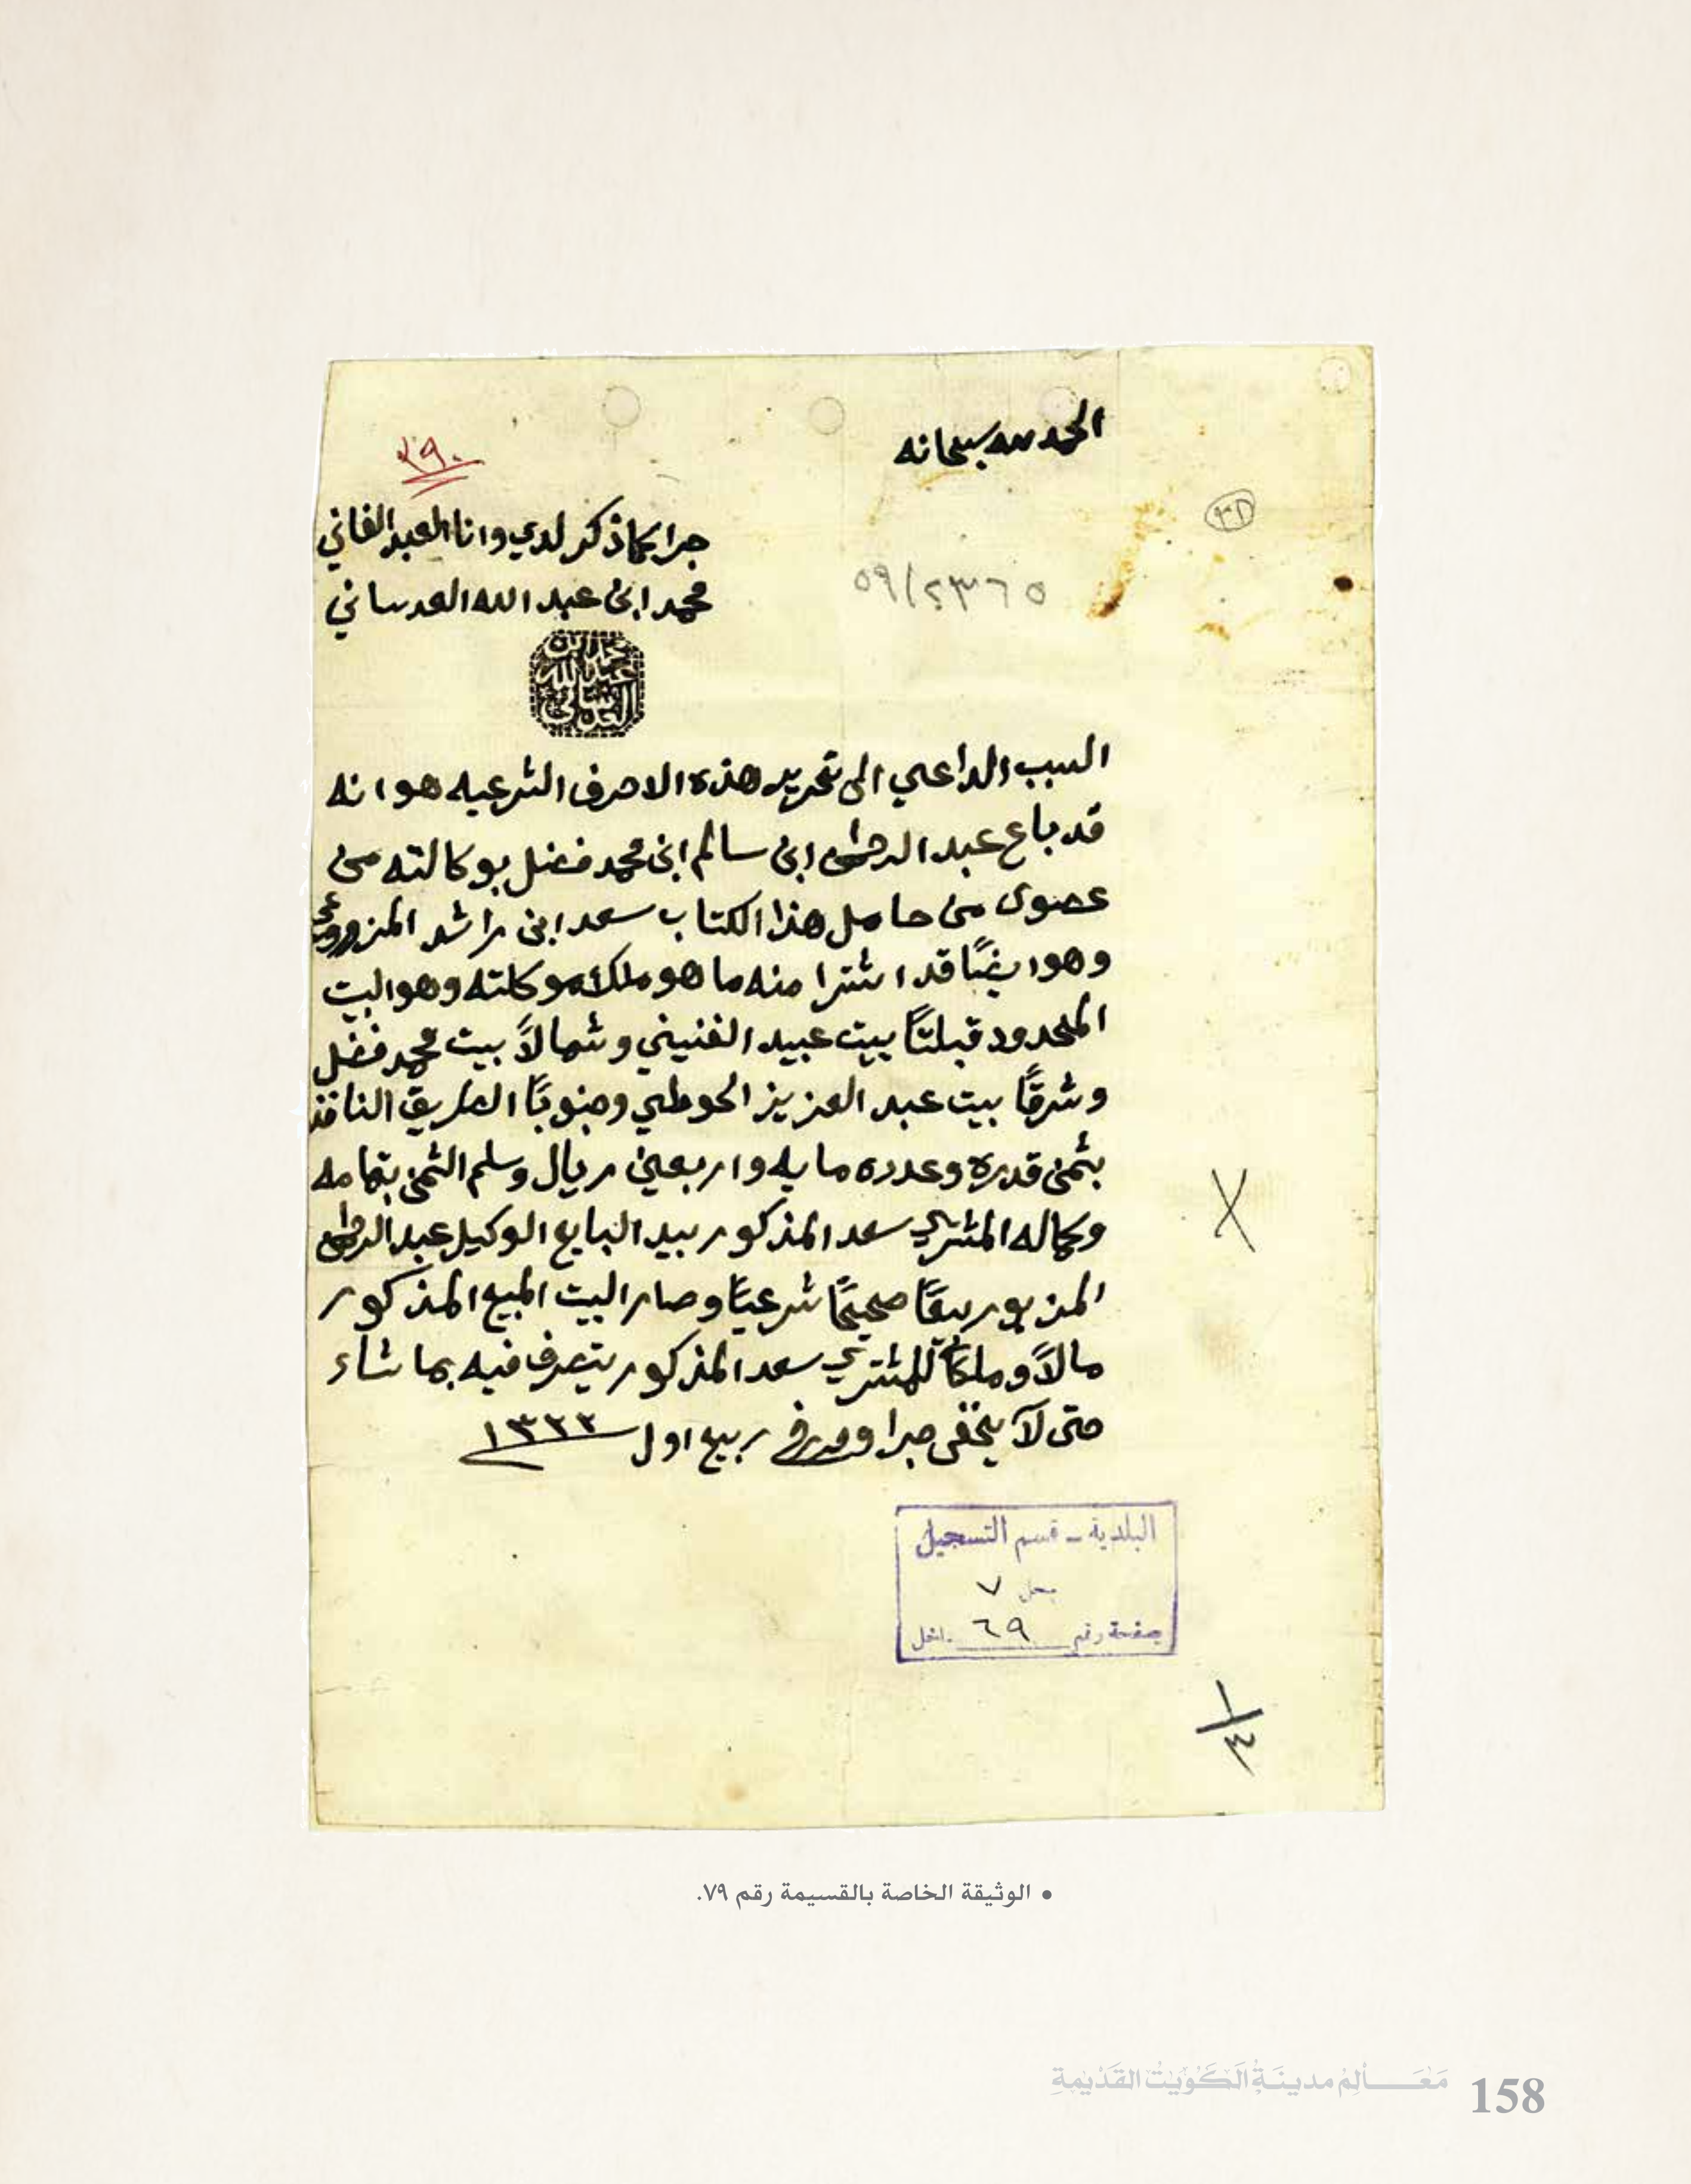 الحمد لله سبحانه
٢٩٠
٣٨
جرا كما ذكر لدي وانا العبد الفاني
محمد ابن عبد الله العدساني
٥٩/٢٣٦٥
محمد ابن
عبد الله
العدساني
السبب الداعي الى تحرير هذه الاحرف الشرعيه هو انه
قد باع عبد الرحمن ابن سالم ابن محمد فضل بوكالته من
من حامل هذا الكتاب سعد ابن راشد المزروعي
وهو ايضًا قد اشترا منه ما هو ملك موكلته وهو البيت
المحدود قبلتًا بيت عبيد الفنيني وشمالاً بيت محمد فضل
وشرقًا بيت عبد العزيز الحوطي وجنوبًا الطريق النافذ
بثمن قدره وعدده مايه واربعين ريال وسلم الثمن بتمامه
وكماله المشتري سعد المذكور بيد البايع الوكيل عبد الرحمن
المزبور بيعًا صحيحًا شرعيًا وصار البيت المبيع المذكور
مالاً وملكًا للمشتري سعد المذكور يتصرف فيه بما شاء
حتى لا يخفى جرا وحرر في ربيع اول ١٣٣٢
البلدية - قسم التسجيل
سجل ٧
صفحة رقم ٦٩
١/٤
• الوثيقة الخاصة بالقسيمة رقم ٧٩.
مَعَـالِمُ مدينَةِ الكُوَيْت القَدْيمةِ 158